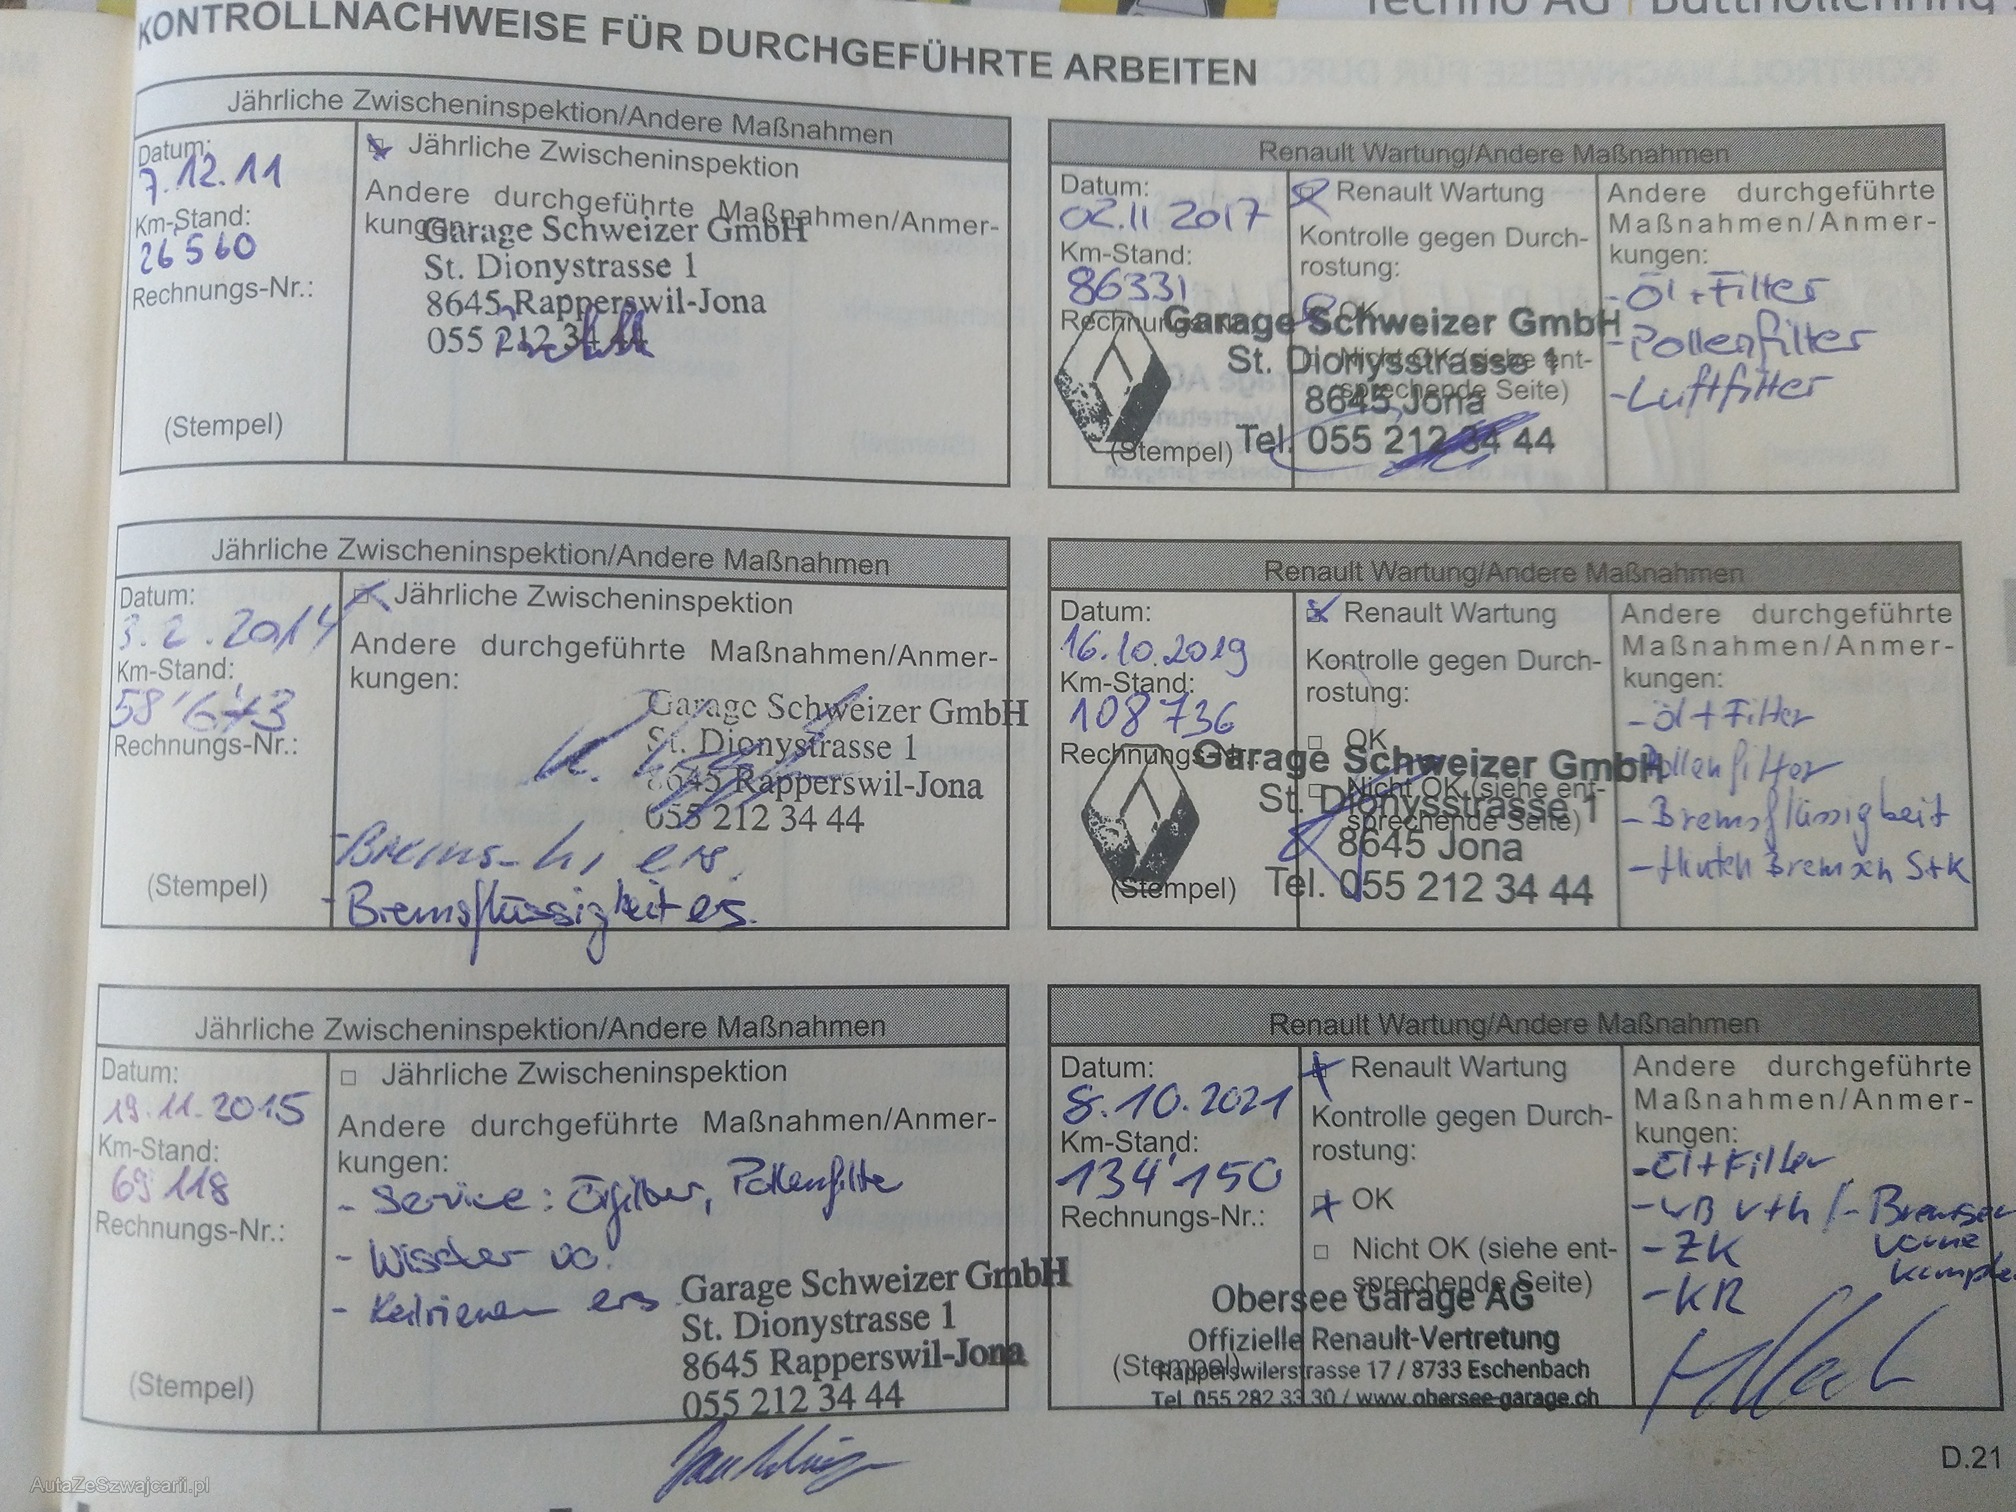 KONTROLLNACHWEISE FÜR DURCHGEFÜHRTE ARBEITEN
Jährliche Zwischeninspektion/Andere Maßnahmen
Datum:
7.12.11
Km-Stand:
26560
Rechnungs-Nr.:
(Stempel)
Jährliche Zwischeninspektion
Andere durchgeführte Maßnahmen/Anmer-
kungen:
Garage Schweizer GmbH
St. Dionystrasse 1
8645 Rapperswil-Jona
055 212 34 44
Jährliche Zwischeninspektion/Andere Maßnahmen
Datum:
3.2.2014
Km-Stand:
58'673
Rechnungs-Nr.:
(Stempel)
Jährliche Zwischeninspektion
Andere durchgeführte Maßnahmen/Anmer-
kungen:
Garage Schweizer GmbH
St. Dionystrasse 1
8645 Rapperswil-Jona
055 212 34 44
- Brems- hi ers.
- Bremsflüssigkeit ers.
Jährliche Zwischeninspektion/Andere Maßnahmen
Datum:
19.11.2015
Km-Stand:
69 118
Rechnungs-Nr.:
(Stempel)
Jährliche Zwischeninspektion
Andere durchgeführte Maßnahmen/Anmer-
kungen:
- Service: Pollenfilter
- Wischer vo.
- Keilriemen ers
Garage Schweizer GmbH
St. Dionystrasse 1
8645 Rapperswil-Jona
055 212 34 44
Renault Wartung/Andere Maßnahmen
Datum:
02.11 2017
Km-Stand:
86331
Rechnungs-Nr.:
(Stempel)
Renault Wartung
Kontrolle gegen Durch-
rostung:
OK
Nicht OK (siehe ent-
sprechende Seite)
Garage Schweizer GmbH
St. Dionysstrasse 1
8645 Jona
Tel. 055 212 34 44
Andere durchgeführte
Maßnahmen/Anmer-
kungen:
- Öl + Filter
- Pollenfilter
- Luftfilter
Renault Wartung/Andere Maßnahmen
Datum:
16.10.2019
Km-Stand:
108 736
Rechnungs-Nr.:
(Stempel)
Renault Wartung
Kontrolle gegen Durch-
rostung:
OK
Nicht OK (siehe ent-
sprechende Seite)
Garage Schweizer GmbH
St. Dionysstrasse 1
8645 Jona
Tel. 055 212 34 44
Andere durchgeführte
Maßnahmen/Anmer-
kungen:
- Öl + Filter
Pollenfilter
- Bremsflüssigkeit
- Hinten Bremsen
Renault Wartung/Andere Maßnahmen
Datum:
8.10.2021
Km-Stand:
134'150
Rechnungs-Nr.:
(Stempel)
Renault Wartung
Kontrolle gegen Durch-
rostung:
OK
Nicht OK (siehe ent-
sprechende Seite)
Obersee Garage AG
Offizielle Renault-Vertretung
Rapperswilerstrasse 17 / 8733 Eschenbach
Tel. 055 282 33 30 / www.obersee-garage.ch
Andere durchgeführte
Maßnahmen/Anmer-
kungen:
- Öl + Filter
- WB v+h / - Bremsen
- ZK vorne
- KR
D.21
AutaZeSzwajcarii.pl